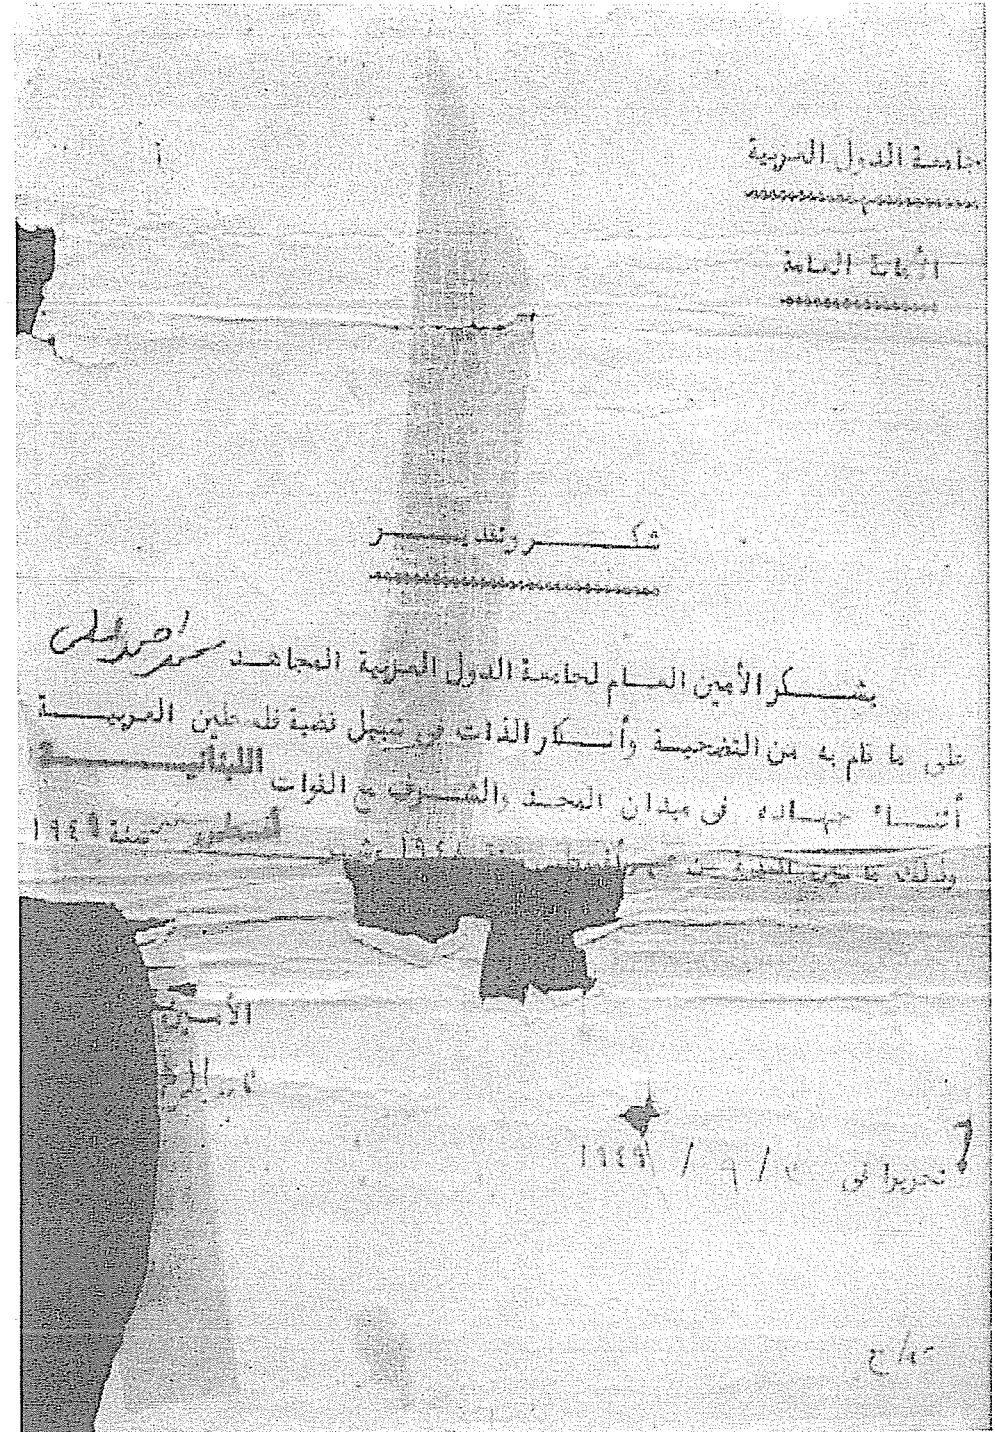 جامعة الدول العربية
الأمانة العامة
شكر وتقدير
يشكر الأمين العام لجامعة الدول العربية المجاهد احمد
على ما قام به من التضحية وأنكار الذات في سبيل قضية فلسطين العربية
أثناء جهاده فى ميدان المجد والشرف مع القوات اللبنانية
وذلك أغسطس سنة ١٩٤٨ سنة ١٩٤٩
الأمين
تحريرا في / ٩ / ١٩٤٩